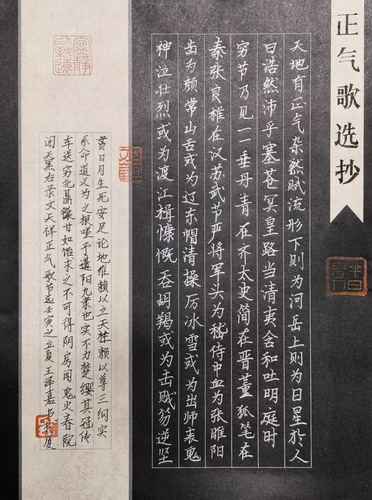 正气歌选抄
天地有正气杂然赋流形下则为河岳上则为日星於人
曰浩然沛乎塞苍冥皇路当清夷含和吐明庭时
穷节乃见一一垂丹青在齐太史简在晋董狐笔在
秦张良椎在汉苏武节严将军头为嵇侍中血为张睢阳
齿为颜常山舌或为辽东帽清操厉冰雪或为出师表鬼
神泣壮烈或为渡江楫慷慨吞胡羯或为击贼笏逆竖
贯日月生死安足论地维赖以立天柱赖以尊三纲实
系命道义为之根嗟予遘阳九隶也实不力楚缨其冠传
车送穷北鼎镬甘如饴求之不可得阴房阗鬼火春院
闭天黑右录文天祥正气歌节选壬寅之立夏王泽嘉书於厦
宁静致远